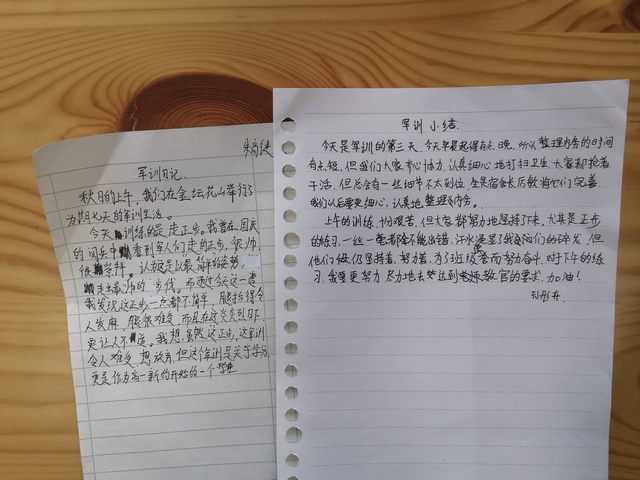 军训日记
秋日的上午，我们在金坛茅山举行了
为期七天的军训生活。
今天训练的是走正步。我曾在国庆
的阅兵中看到军人们走的正步，很帅，
很崇拜。认为是以最简单的姿势，
走出最帅的步伐，而通过今天这一练
我发现这正步一点都不简单，腿抬得令
人发麻，腿很难受，而且在这炎炎烈日下
更让人不适。我想，虽然这正步，这军训
令人难受，想放弃，但这个军训是关于学分
更是作为高一新的开始的一个
军训小结
今天是军训的第三天，今天早晨起得有点晚，所以整理内务的时间
有点短，但我们大家齐心协力，认真细心地打扫卫生，大家都抢着
干活，但总会有一些细节不太到位，全是宿舍长后教将它们完善，
我们以后要更细心，认真地整理内务。
上午的训练，十分艰苦，但大家都努力地坚持了下来，尤其是正步
的练习，一丝一毫都容不能出错，汗水浸湿了我们的碎发，但
他们仍坚持着，努力着，为了班级荣誉而努力奋斗，对于下午的练
习，我要更努力，尽力地去达到教官的要求，加油！